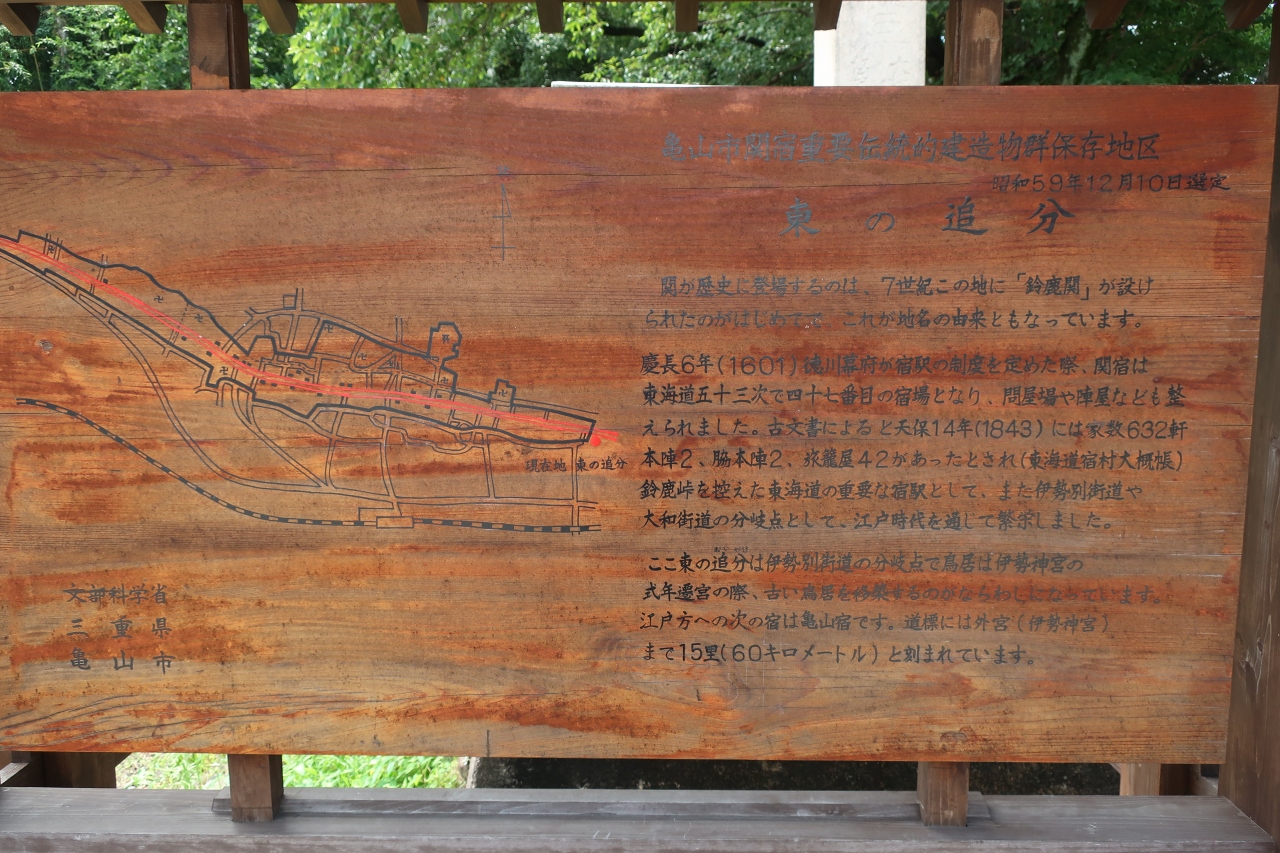 亀山市関宿重要伝統的建造物群保存地区
昭和59年12月10日選定
東の追分
関が歴史に登場するのは、7世紀この地に「鈴鹿関」が設け
られたのがはじめてで、これが地名の由来ともなっています。
慶長6年(1601)徳川幕府が宿駅の制度を定めた際、関宿は
東海道五十三次で四十七番目の宿場となり、問屋場や陣屋なども整
えられました。古文書によると天保14年(1843)には家数632軒
本陣2、脇本陣2、旅籠屋42があったとされ(東海道宿村大概帳)
鈴鹿峠を控えた東海道の重要な宿駅として、また伊勢別街道や
大和街道の分岐点として、江戸時代を通じて繁栄しました。
ここ東の追分は伊勢別街道の分岐点で鳥居は伊勢神宮の
式年遷宮の際、古い鳥居を移築するのがならわしになっています。
江戸方への次の宿は亀山宿です。道標には外宮(伊勢神宮)
まで15里(60キロメートル)と刻まれています。
現在地 東の追分
文部科学省
三重県
亀山市